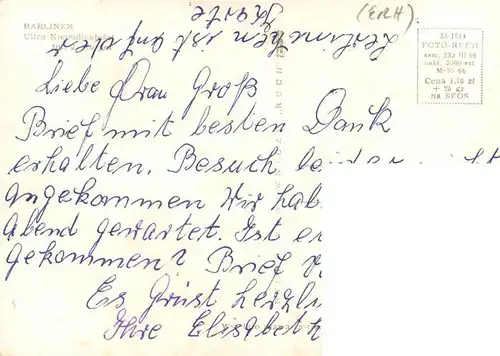 BARLINEK
Ulica Niepodległości
(ERH)
Berlinchen ist auf der
Karte
50-1584
FOTO-RUCH
zam. 232 III 66
nakł. 2000 szt
M-55 66
Cena 1,70 zł
+ 20 gr
na SFOS
Liebe Frau Groß
Brief mit besten Dank
erhalten. Besuch
angekommen Wir hab
Abend gewartet. Ist er
gekommen? Brief
Es Grüst herzli
Ihre Elisabeth